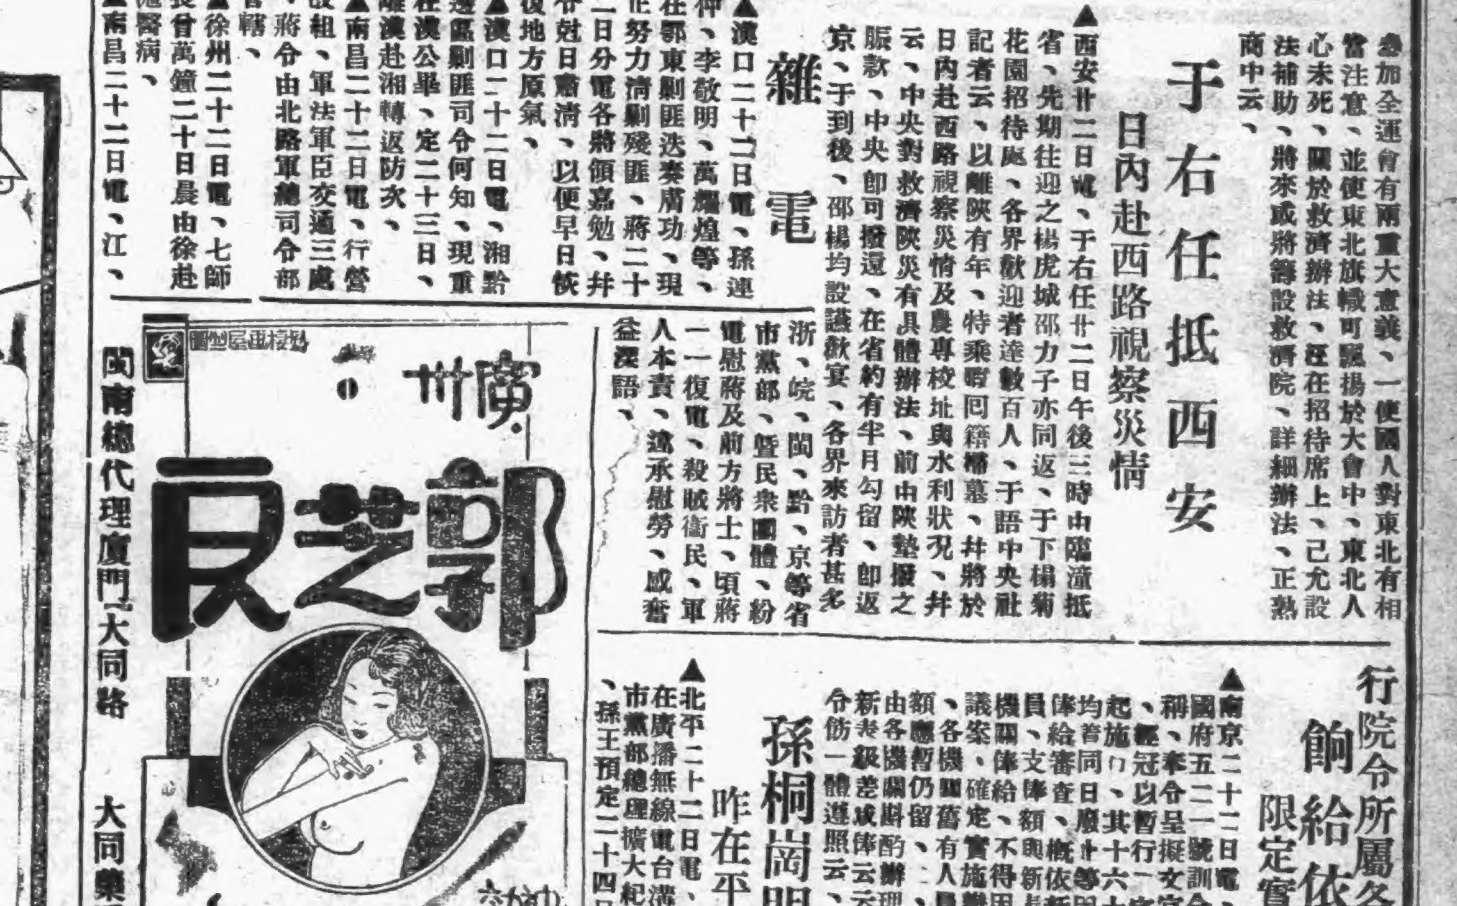 參加全運會有兩重大意義、一使國人對東北有相
當注意、並使東北旗幟可飄揚於大會中、東北人
心未死、關於救濟辦法、汪在招待席上、己允設
法補助、將來或將籌設救濟院、詳細辦法、正熟
商中云、
于右任抵西安
日內赴西路視察災情
▲西安廿二日電、于右任廿二日午後三時由臨潼抵
省、先期往迎之楊虎城邵力子亦同返、于下榻菊
花園招待處、各界歡迎者達數百人、于語中央社
記者云、以離陝有年、特乘暇回籍掃墓、幷將於
日內赴西路視察災情及農專校址與水利狀況、幷
云、中央對救濟陝災有具體辦法、前由陝墊撥之
賑款、中央卽可撥還、在省約有半月勾留、卽返
京、于到後、邵楊均設讌歡宴、各界來訪者甚多
雜電
▲漢口二十二日電、孫連
仲、李敬明、萬耀煌等、
在鄂東剿匪迭奏膚功、現
正努力清剿殘匪、蔣二十
二日分電各將領嘉勉、幷
令尅日肅清、以便早日恢
復地方原氣、
▲漢口二十二日電、湘黔
邊區剿匪司令何知、現重
在漢公畢、定二十三日、
離漢赴湘轉返防次、
▲南昌二十二日電、行營
設組、軍法軍臣交通三處
、蔣令由北路軍總司令部
管轄、
▲徐州二十二日電、七師
長曾萬鐘二十日晨由徐赴
醫病、
▲南昌二十二日電、江、
浙、皖、閩、黔、京等省
市黨部、曁民衆團體、紛
電慰蔣及前方將士、頃蔣
一一復電、殺賊衞民、軍
人本責、遠承慰勞、感奮
益深語、
行院令所屬各
餉給依
限定實
▲南京二十二日電、
國府五二一號訓令
稱、奉令呈擬文官
、經冠以暫行
起施行、其十六
均着同日廢止等因
俸給審查、槪依新
員、支俸額與新
機關俸給、不得因
議案、確定實施辦
、各機關舊有人員
額應暫仍留、
由各機關斟酌辦理
新表級差成俸云云
令飭一體遵照云、
孫桐崗明
昨在平
▲北平二十二日電、
在廣播無線電台溝
市黨部總理擴大紀
、孫王預定二十四日
廣州
郭芝良
閩南總代理廈門大同路
大同藥